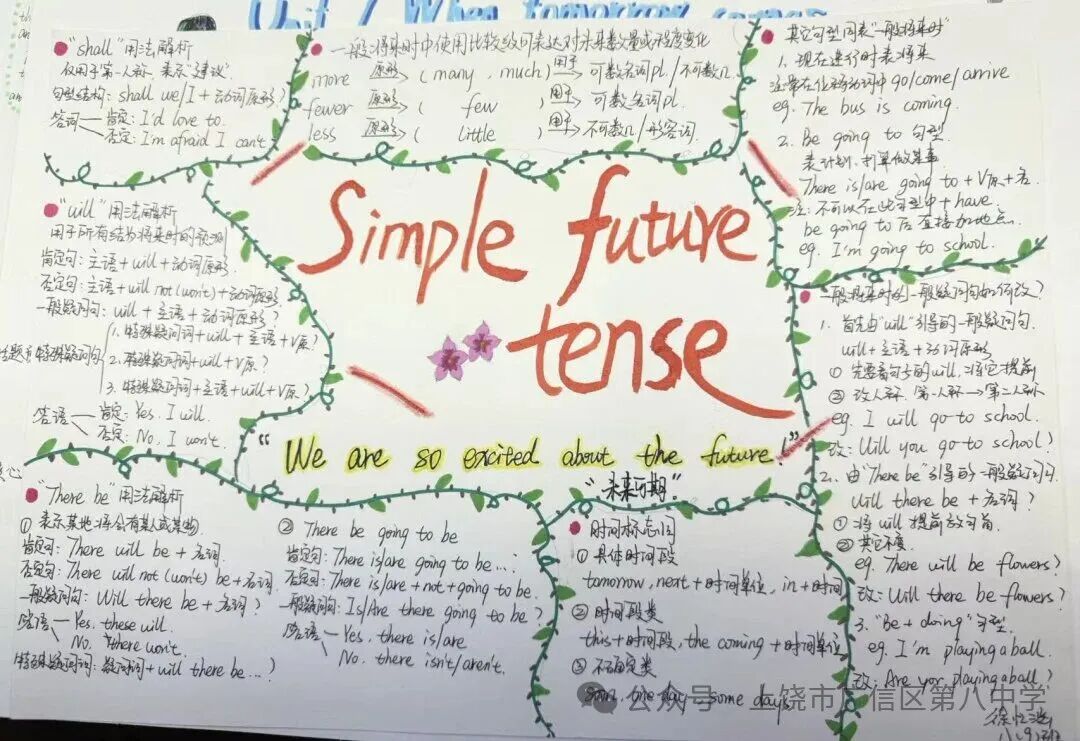 Unit 7 When tomorrow comes
"shall"用法解析
仅用于第一人称,表示"建议".
句型结构: shall we/I + 动词原形?
答词
肯定: I'd love to.
否定: I'm afraid I can't
一般将来时中使用比较级可表达对未来数量或程度变化
more 原形 (many, much) 用于 可数名词pl./不可数n
fewer 原形 (few) 用于 可数名词pl.
less 原形 (little) 用于 不可数n/形容词
其它句型同表"一般将来时"
1. 现在进行时表将来
注:常在位移动词中go/come/arrive
eg. The bus is coming.
2. Be going to 句型
表计划、打算做某事
There is/are going to + V原 + 名.
注: 不可以在此句型中 + have.
be going to 后直接加地点.
eg. I'm going to school.
"will"用法解析
用于所有结为将来时的预测
肯定句: 主语 + will + 动词原形.
否定句: 主语 + will not (won't) + 动词原形
一般疑问句: will + 主语 + 动词原形?
特殊疑问句
1. 特殊疑问词 + will + 主语 + V原?
2. 特殊疑问词 + will + V原?
3. 特殊疑问词 + 主语 + will + V原?
答语
肯定: Yes. I will.
否定: No, I won't.
Simple future
tense
"We are so excited about the future!"
"未来可期."
一般将来时的一般疑问句如何改?
1. 首先由"will"引导的一般疑问句.
will + 主语 + 动词原形
① 先要看句子的will, 将它提前
② 改人称. 第一人称→第二人称
eg. I will go to school.
改: Will you go to school?
2. 由"There be"引导的一般疑问句
Will there be + 名词?
① 将 will 提前放句首.
② 其它不变.
eg. There will be flowers?
改: Will there be flowers?
3. "Be + doing"句型
eg. I'm playing a ball.
改: Are you playing a ball?
"There be"用法解析
① 表示某地将会有某人或某物
肯定句: There will be + 名词.
否定句: There will not (won't) be + 名词
一般疑问句: Will there be + 名词?
答语
Yes, these will.
No, there won't.
特殊疑问词: 疑问词 + will there be...?
② There be going to be
肯定句: There is/are going to be...
否定句: There is/are + not + going to be.
一般疑问句: Is/Are there going to be?
答语
Yes, there is/are
No. there isn't/aren't.
时间标志词
① 具体时间段
tomorrow, next + 时间单位, in + 时间
② 时间段类
this + 时间段, the coming + 时间单位
③ 不确定类
soon, one day, some days
公众号 · 上饶市广信区第八中学